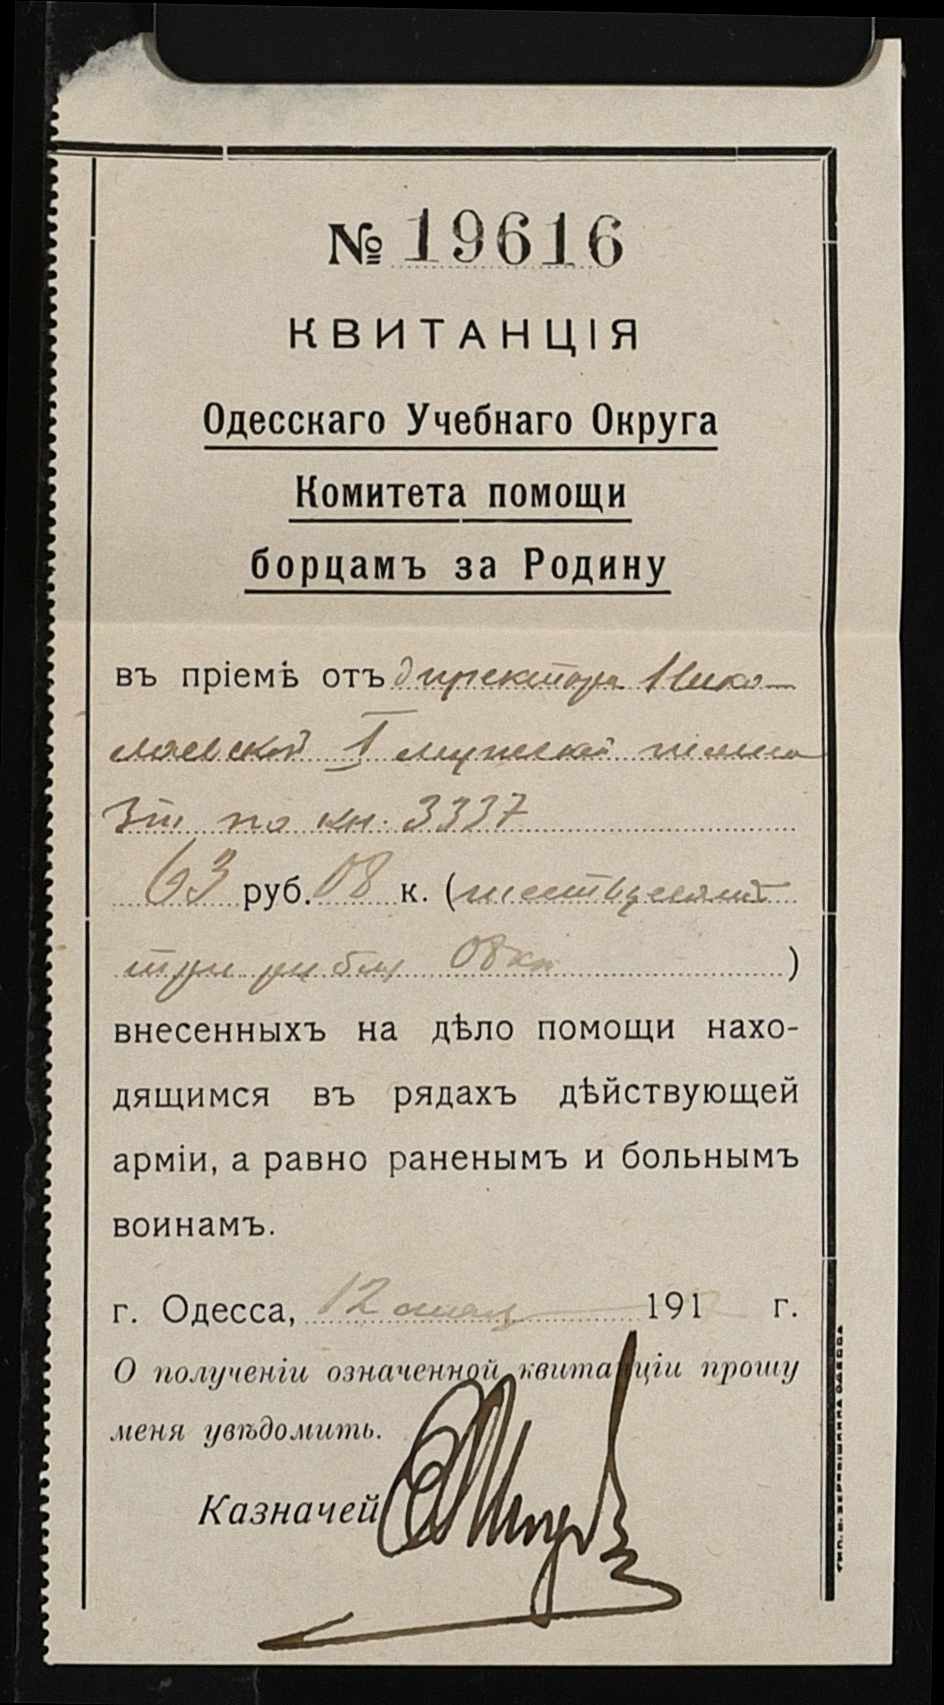 № 19616
КВИТАНЦІЯ
Одесскаго Учебнаго Округа
Комитета помощи
борцамъ за Родину
въ пріемѣ отъ директора Нико-
лаевской I мужской гимна
зіи по кн. 3337
63 руб. 08 к. (шестьдесятъ
три рубля 08 к.)
внесенныхъ на дѣло помощи нахо-
дящимся въ рядахъ дѣйствующей
арміи, а равно раненымъ и больнымъ
воинамъ.
г. Одесса, 12 191 г.
О полученіи означенной квитанціи прошу
меня увѣдомить.
Казначей